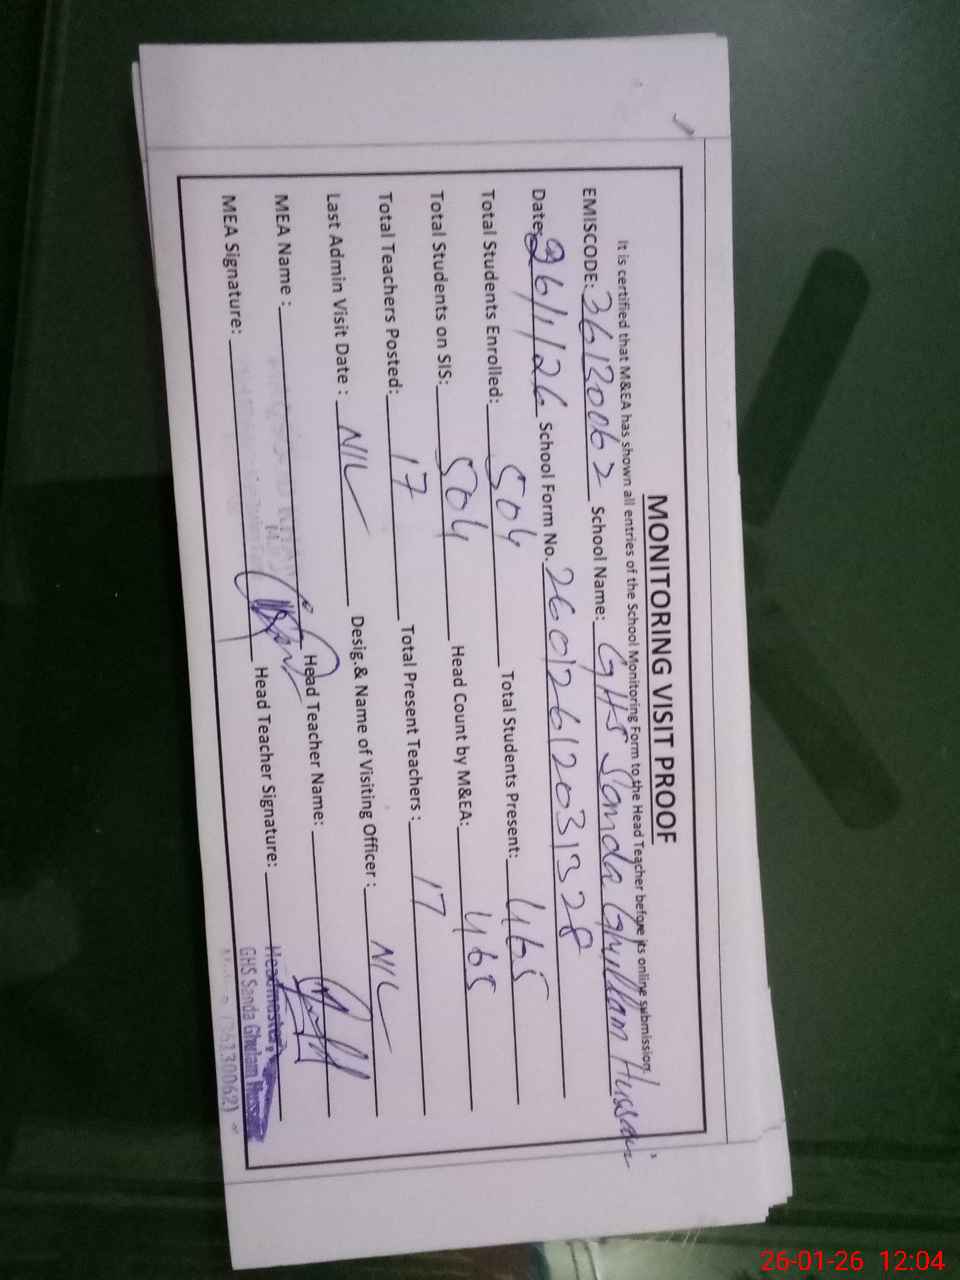 MONITORING VISIT PROOF
It is certified that M&EA has shown all entries of the School Monitoring Form to the Head Teacher before its online submission.
EMISCODE: 36130062 School Name: GHS Sanda Ghullam Hussain
Date: 26/1/26 School Form No. 26012612031328
Total Students Enrolled: 504 Total Students Present: 465
Total Students on SIS: 504 Head Count by M&EA: 465
Total Teachers Posted: 17 Total Present Teachers : 17
Last Admin Visit Date : NIL Desig.& Name of Visiting Officer : NIL
MEA Name : Head Teacher Name:
MEA Signature: Head Teacher Signature:
Headmaster
GHS Sanda Ghulam Hussain
(36130062)
26-01-26 12:04